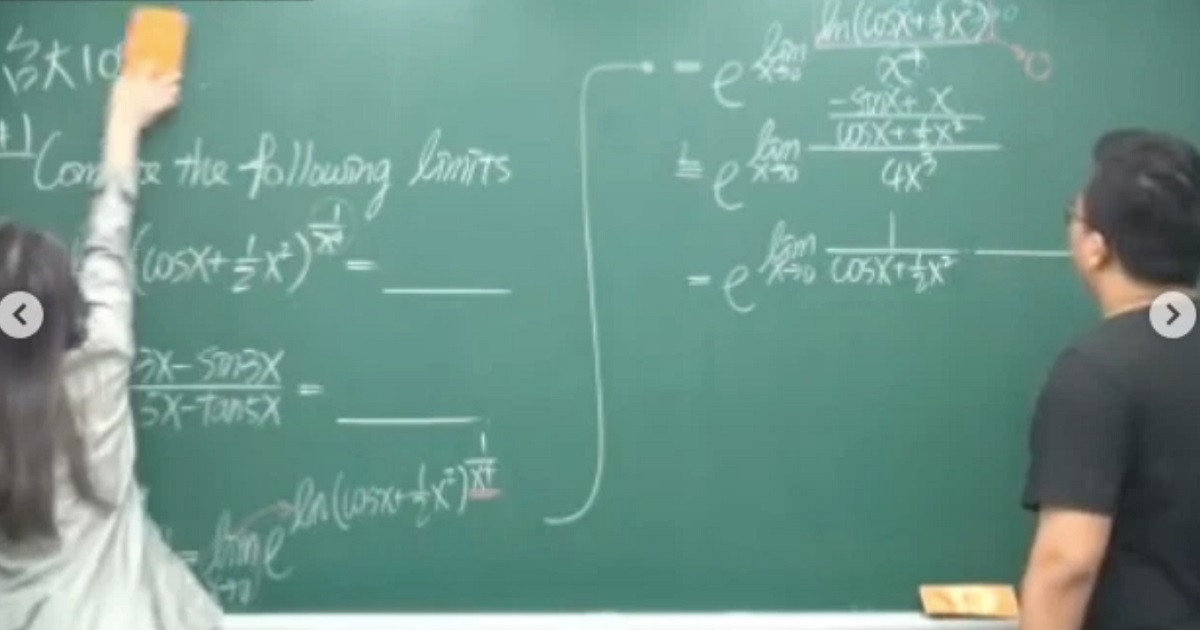 台大10
+1
Com the following limits
(cosx+½x²)^{1/x⁴} = ____
3x-sin3x / 5x-tan5x = ____
= lim x→0 e^{ln(cosx+½x²)^{1/x⁴}}
= e^{lim x→0 ln(cosx+½x²) / x⁴} →0
L= e^{lim x→0 ((-sinx+x) / (cosx+½x²)) / 4x³}
= e^{lim x→0 1 / (cosx+½x²)